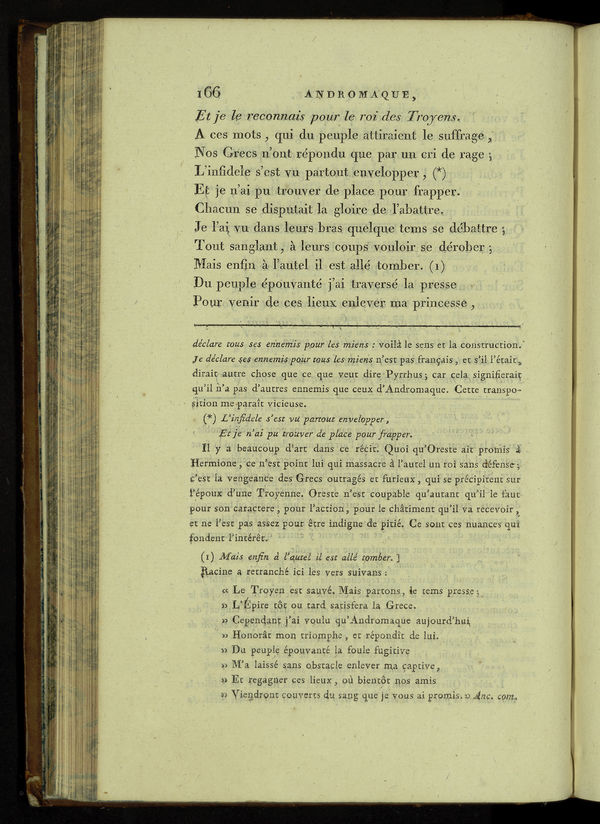 166 ANDROMAQUE,
Et je le reconnais pour le roi des Troyens.
A ces mots, qui du peuple attiraient le suffrage,
Nos Grecs n'ont répondu que par un cri de rage ;
L'infidele s'est vu partout envelopper, (*)
Et je n'ai pu trouver de place pour frapper.
Chacun se disputait la gloire de l'abattre.
Je l'ai vu dans leurs bras quelque tems se débattre ;
Tout sanglant, à leurs coups vouloir se dérober ;
Mais enfin à l'autel il est allé tomber. (1)
Du peuple épouvanté j'ai traversé la presse
Pour venir de ces lieux enlever ma princesse,
déclare tous ses ennemis pour les miens : voilà le sens et la construction.
Je déclare ses ennemis pour tous les miens n'est pas français, et s'il l'était,
dirait autre chose que ce que veut dire Pyrrhus ; car cela signifierait
qu'il n'a pas d'autres ennemis que ceux d'Andromaque. Cette transpo-
sition me paraît vicieuse.
(*) L'infidele s'est vu partout envelopper,
Et je n'ai pu trouver de place pour frapper.
Il y a beaucoup d'art dans ce récit. Quoi qu'Oreste ait promis à
Hermione, ce n'est point lui qui massacre à l'autel un roi sans défense ;
c'est la vengeance des Grecs outragés et furieux, qui se précipitent sur
l'époux d'une Troyenne. Oreste n'est coupable qu'autant qu'il le faut
pour son caractere, pour l'action, pour le châtiment qu'il va recevoir,
et ne l'est pas assez pour être indigne de pitié. Ce sont ces nuances qui
fondent l'intérêt.
(1) Mais enfin à l'autel il est allé tomber. ]
Racine a retranché ici les vers suivans :
« Le Troyen est sauvé. Mais partons, le tems presse ;
» L'Épire tôt ou tard satisfera la Grece.
» Cependant j'ai voulu qu'Andromaque aujourd'hui
» Honorât mon triomphe, et répondît de lui.
» Du peuple épouvanté la foule fugitive
» M'a laissé sans obstacle enlever ma captive,
» Et regagner ces lieux, où bientôt nos amis
» Viendront couverts du sang que je vous ai promis. » Anc. com.